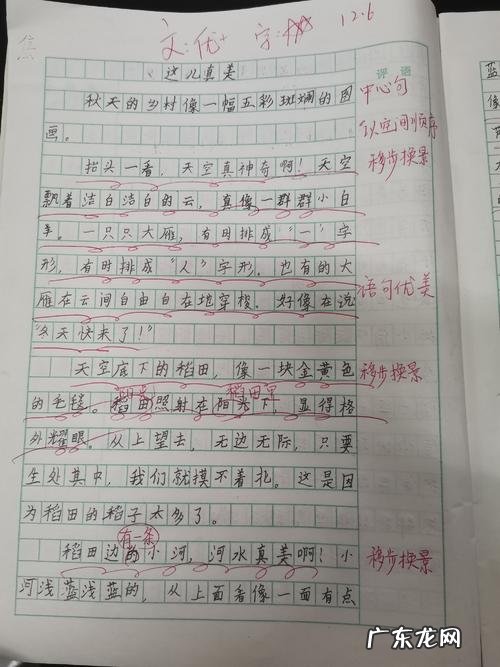 文:优+ 字: 12.6
评语
《这儿真美》
中心句
秋天的乡村像一幅五彩斑斓的图
画。
以空间顺序
抬头一看,天空真神奇啊!天空
移步换景
飘着洁白洁白的云,真像一群群小白
羊。一只只大雁,有时排成“一”字
形,有时排成“人”字形。也有的大
语句优美
雁在云间自由自在地穿梭。好像在说
“冬天快来了!”
天空底下的稻田,像一块金黄色
移步换景
阳光 稻田里
的毛毯。稻田照射在阳光下,显得格
外耀眼。从上望去,无边无际,只要
生处其中,我们就摸不着北。这是因
为稻田的稻子太多了。
有一条
稻田边的小河,河水真美啊!小
移步换景
河浅蓝浅蓝的,从上面看像一面有点
蓝
像
广东龙网
www.gdlong.com